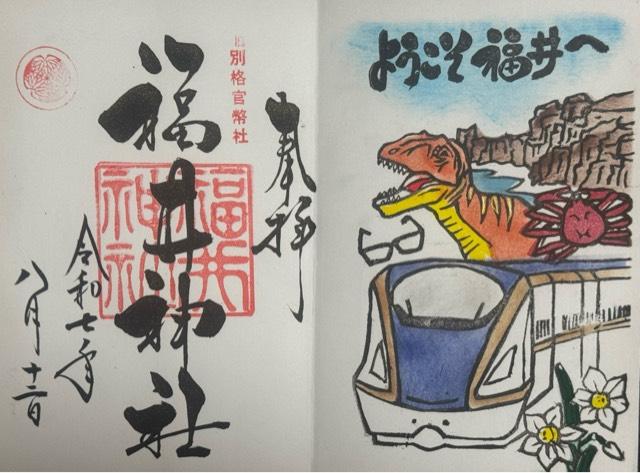 奉拝
旧別格官幣社
福井神社
福井
神社
令和七年
八月十二日
ようこそ福井へ